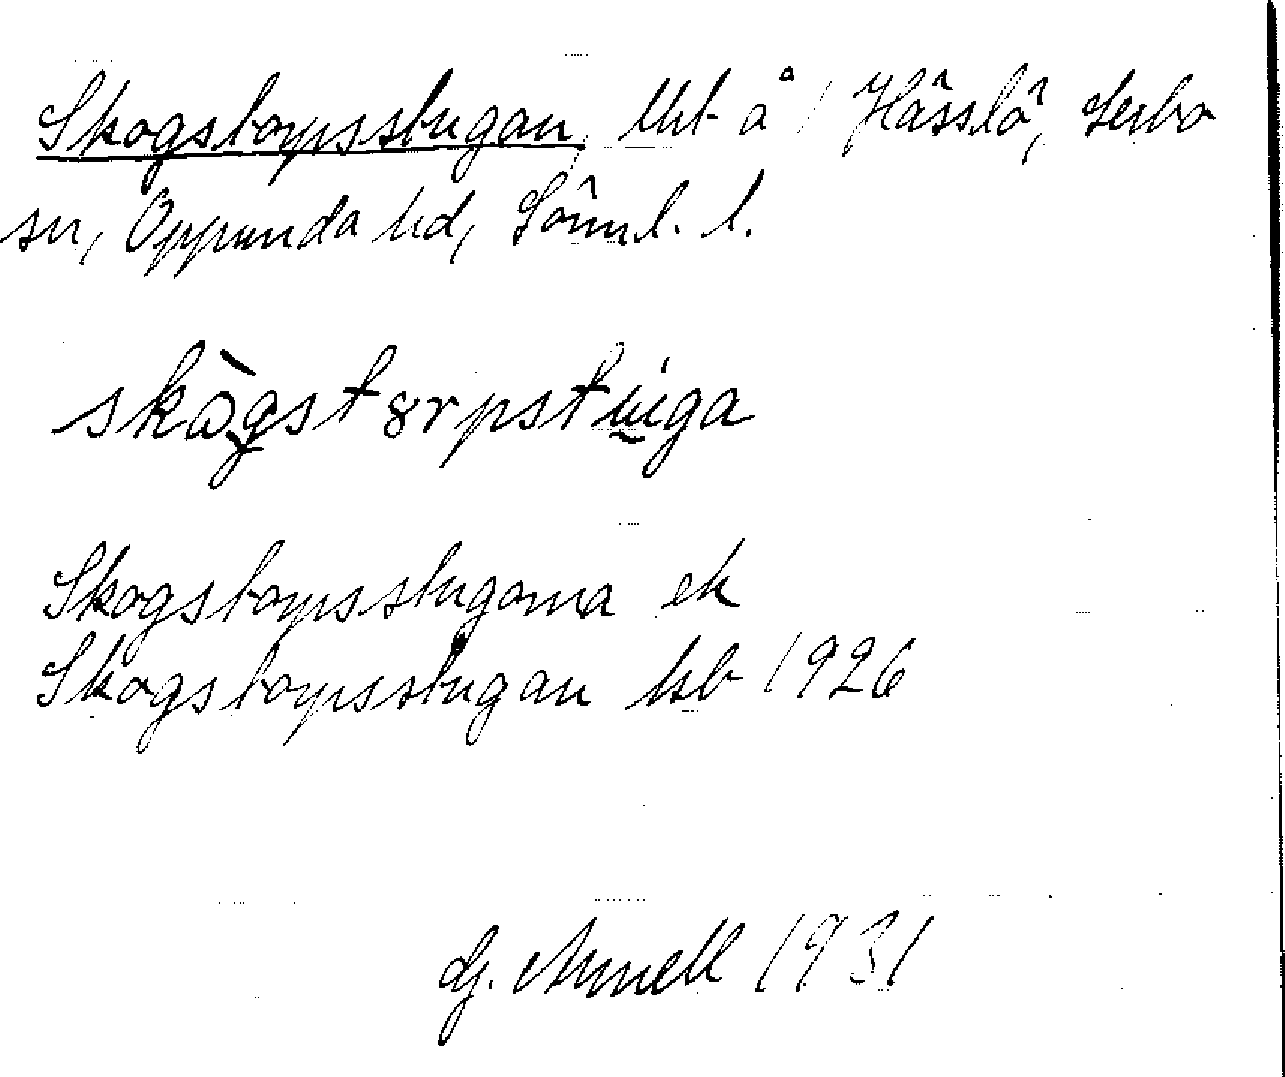 Skogstorpsstugan, tht å 1 Hässlö, Lerbo
sn, Oppunda hd, Söml. l.
skògstørpstuga
Skogstorpsstugorna ek
Skogstorpsstugan hsb 1926
G. Arnell 1931